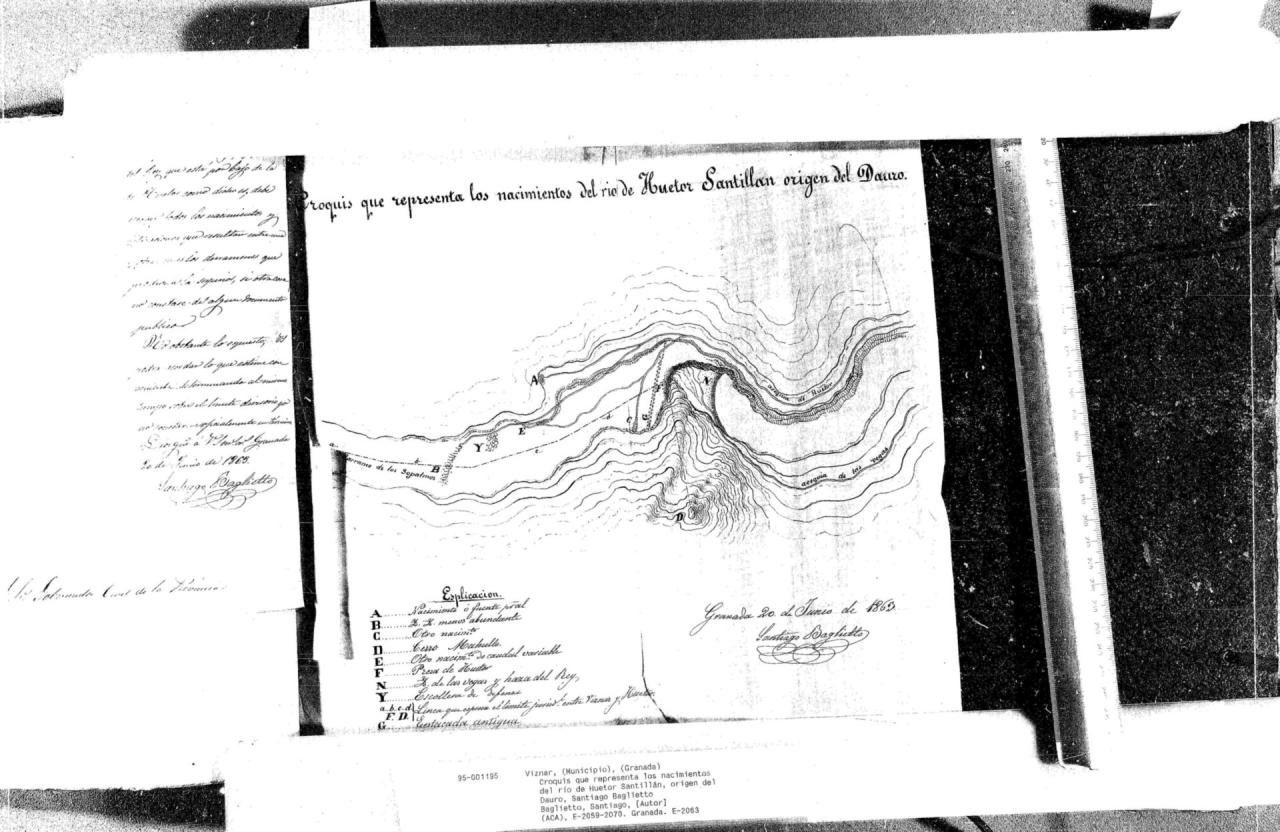 que está por bajo de la
como dicho es, debe
todos los nacimientos y
que resultan entre una
los derrames que
la segunda, si otra cosa
no constase de algun documento
publico
No obstante lo espuesto, VS
lo que estime con
determinando al mismo
tiempo sobre el limite divisorio
Granada
20 de Junio de 1863.
Santiago Baglietto
Sr. Gobernador Civil de la Provincia
Croquis que representa los nacimientos del rio de Huetor Santillan origen del Dauro.
A
acequia de Huetor
N
C
G
d
E
c
Y
a
b
B
barranco de los
acequia de las vegas
D
Esplicacion.
A ...... Nacimiento ó fuente pral
B ...... Id. Id. menos abundante
C ...... Otro nacimto
D ...... Cerro
E ...... Otro nacimto de caudal variable
F ...... Presa de Huetor
N ...... Id. de las vegas y haza del Rey,
Y ...... Escollera de defensa
a.b.c.d. F.D. Linea que espresa el limite entre Viznar y Huetor
G ...... Estacada antigua
Granada 20 de Junio de 1863
Santiago Baglietto
95-001195
Viznar, (Municipio), (Granada)
Croquis que representa los nacimientos
del río de Huetor Santillán, origen del
Dauro, Santiago Baglietto
Baglietto, Santiago, [Autor]
(ACA), E-2059-2070. Granada. E-2063